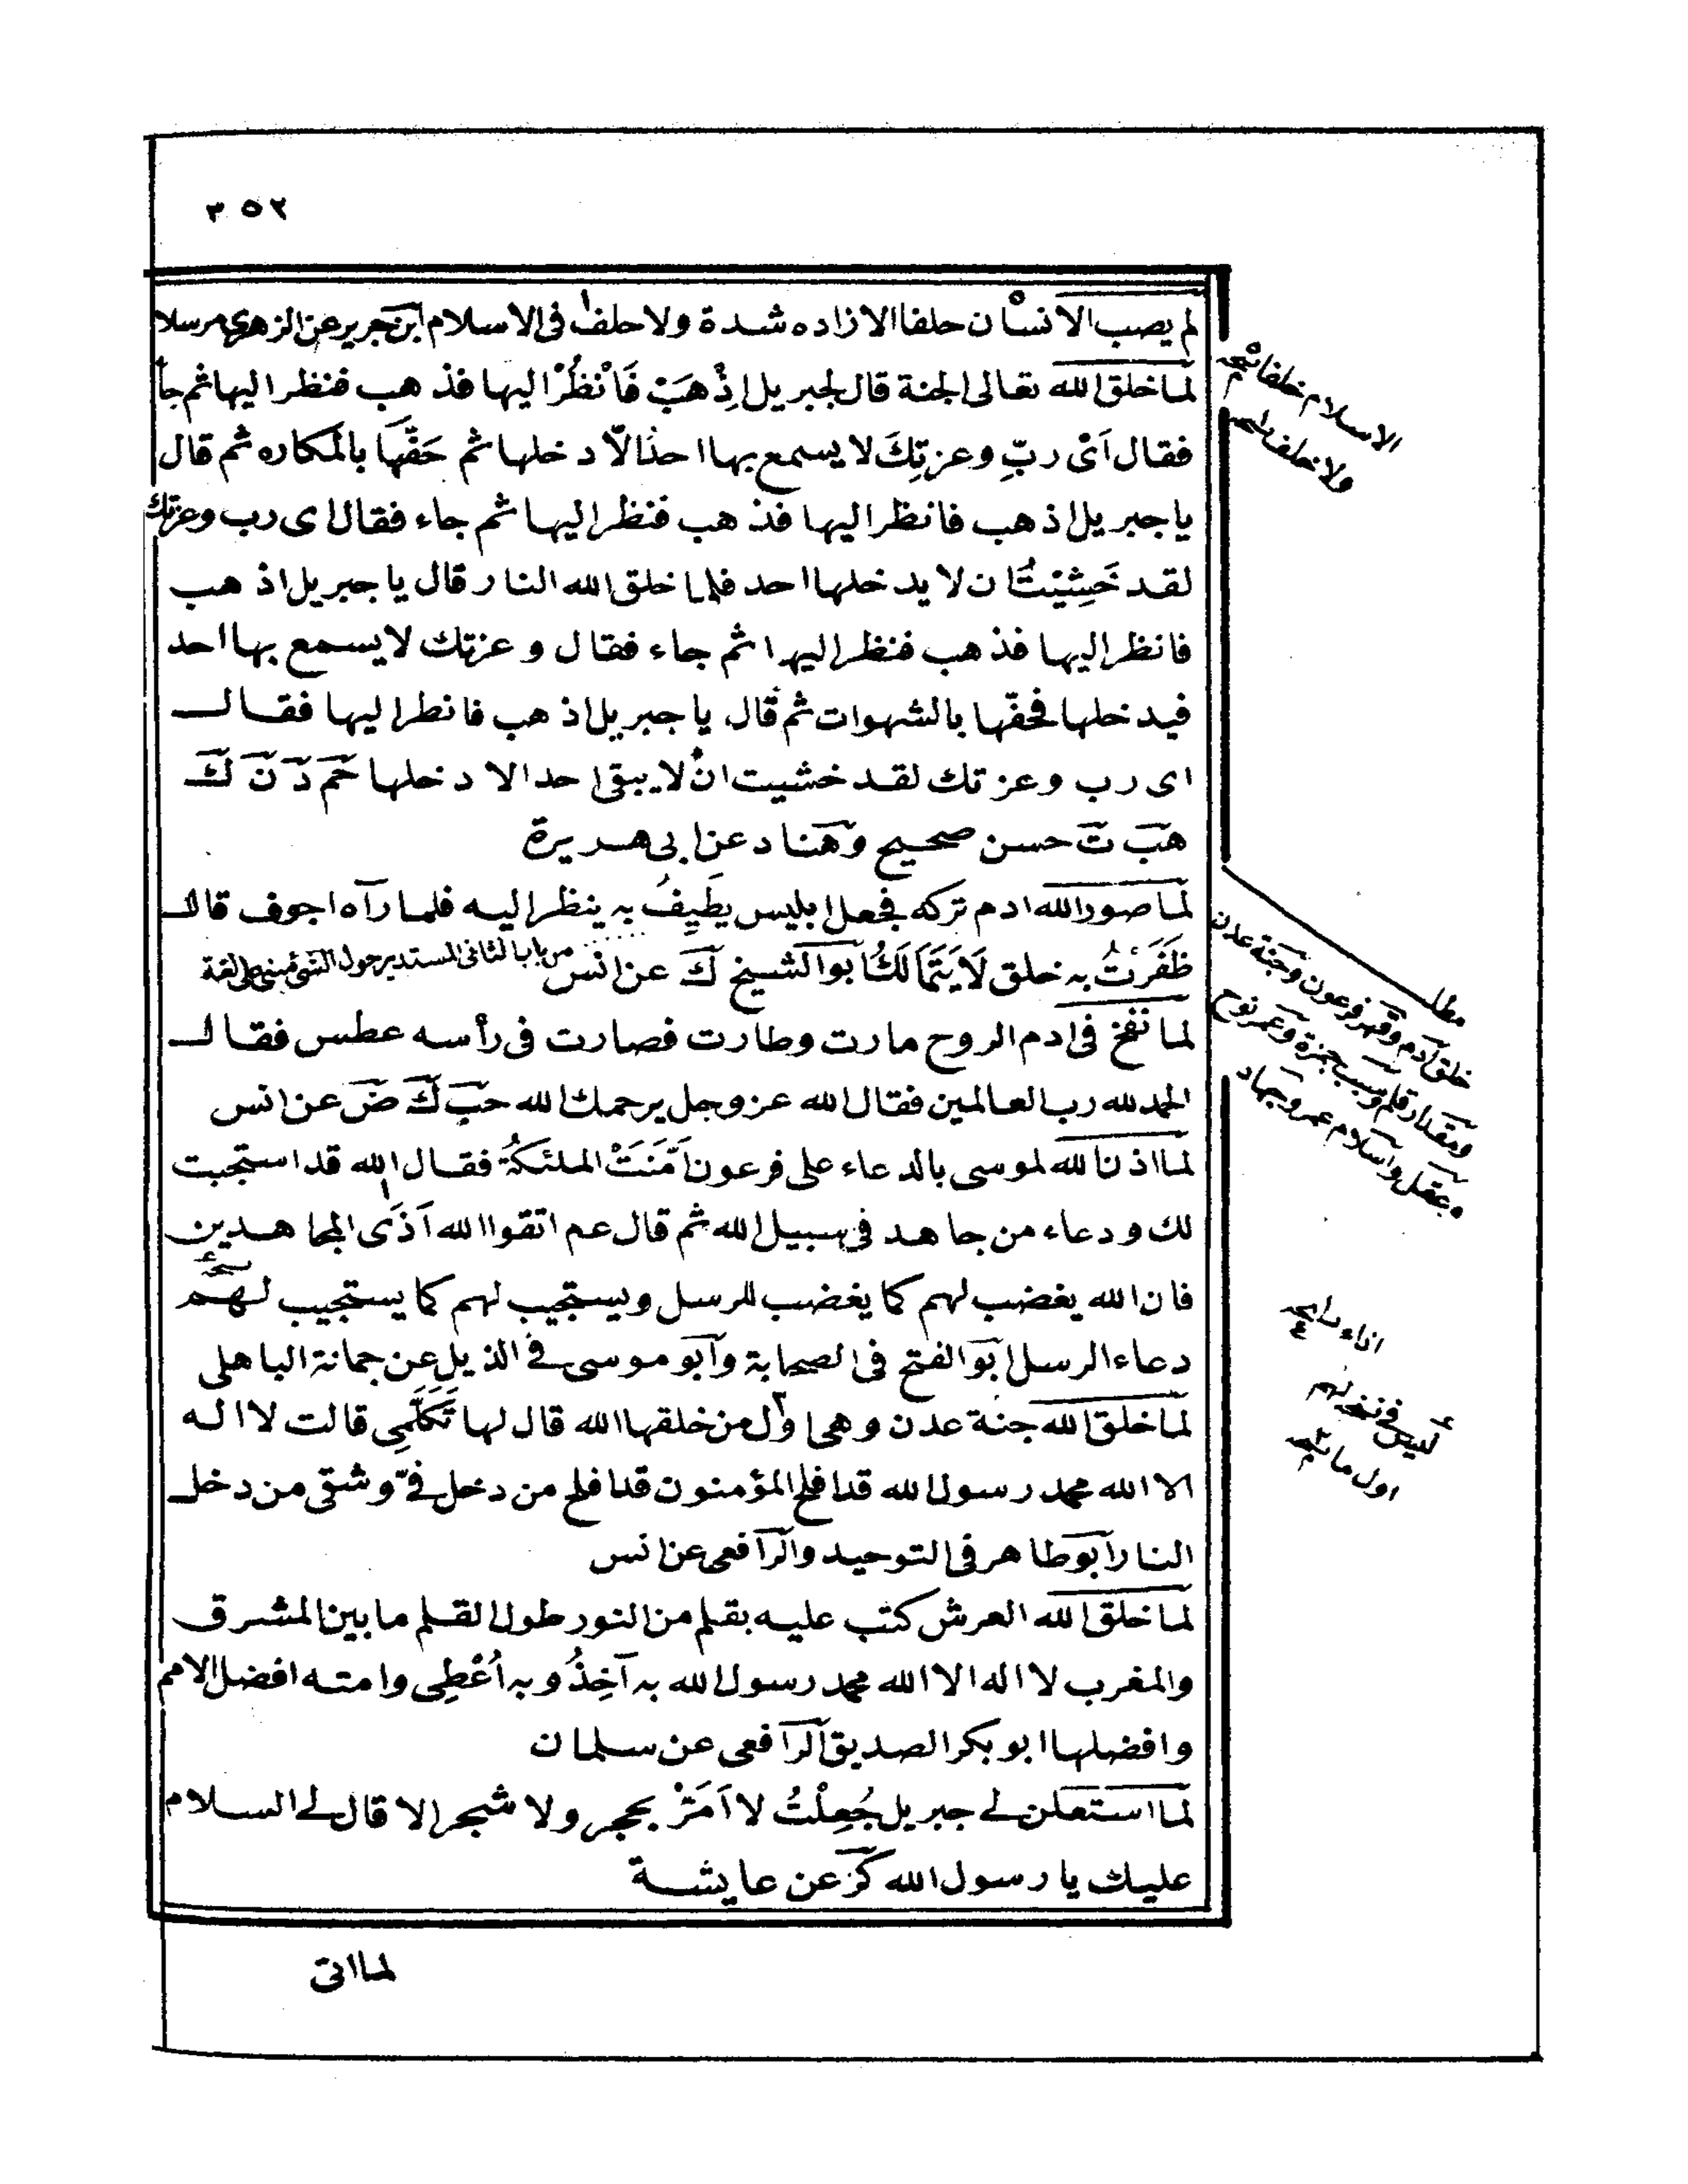 ٣٥٢
لم يصب الانسان حلفا الا زاده شدة ولا حلف فى الاسلام ابن جرير عن الزهرى مرسلا
لما خلق الله تعالى الجنة قال لجبريل اِذْهَبْ فَانْظُرْ اليها فذهب فنظر اليها ثم جاء
فقال اَىْ ربِّ وعزتِكَ لا يسمع بها احدٌ الّا دخلها ثم حَفَّهَا بالمكاره ثم قال
يا جبريل اذهب فانظر اليها فذهب فنظر اليها ثم جاء فقال اى رب وعزتك
لقد خَشِيْتُ ان لا يدخلها احد فلما خلق الله النار قال يا جبريل اذهب
فانظر اليها فذهب فنظر اليها ثم جاء فقال وعزتك لا يسمع بها احد
فيدخلها فحفّها بالشهوات ثم قال يا جبريل اذهب فانظر اليها فقال
اى رب وعزتك لقد خشيت ان لا يبقى احد الا دخلها حم د ن ك
هب ت حسن صحيح وهناد عن ابى هريرة
لما صور الله ادم تركه فجعل ابليس يطيفُ به ينظر اليه فلما رآه اجوف قال
ظَفَرْتُ به خلق لَا يَتَمَالَكُ ابو الشيخ ك عن انس من باب الثانى المستدير حول الشئ
لما نفخ فى ادم الروح مارت وطارت فصارت فى رأسه عطس فقال
الحمد لله رب العالمين فقال الله عز وجل يرحمك الله حب ك ض عن انس
لما اذن الله لموسى بالدعاء على فرعون اَمَّنَتْ الملئكةُ فقال الله قد استجبت
لك ودعاء من جاهد فى سبيل الله ثم قال عم اتقوا الله آذَى المجاهدين
فان الله يغضب لهم كما يغضب للرسل ويستجيب لهم كما يستجيب لهم
دعاء الرسل ابو الفتح فى الصحابة وابو موسى فى الذيل عن جمانة الباهلى
لما خلق الله جنة عدن وهى اول من خلقها الله قال لها تَكَلَّمِى قالت لا اله
الا الله محمد رسول الله قد افلح المؤمنون قد افلح من دخل فىّ وشقى من دخل
النار ابو طاهر فى التوحيد والرافعى عن انس
لما خلق الله العرش كتب عليه بقلم من النور طول القلم ما بين المشرق
والمغرب لا اله الا الله محمد رسول الله به آخِذُ وبه اُعْطِى وامته افضل الامم
وافضلها ابو بكر الصديق الرافعى عن سلمان
لما استعلن لى جبريل جُعِلْتُ لا اَمَرّْ بحجر ولا شجر الا قال لى السلام
عليك يا رسول الله كر عن عايشة
لما اتى
الاسلام خلفا
ولا خلف
مطلب
خلق آدم وقهر فرعون وجنة عدن
ومقدار قلم وسبب حمزة وعمر نوح
وعقل واسلام عمر وجهاد
اول ما